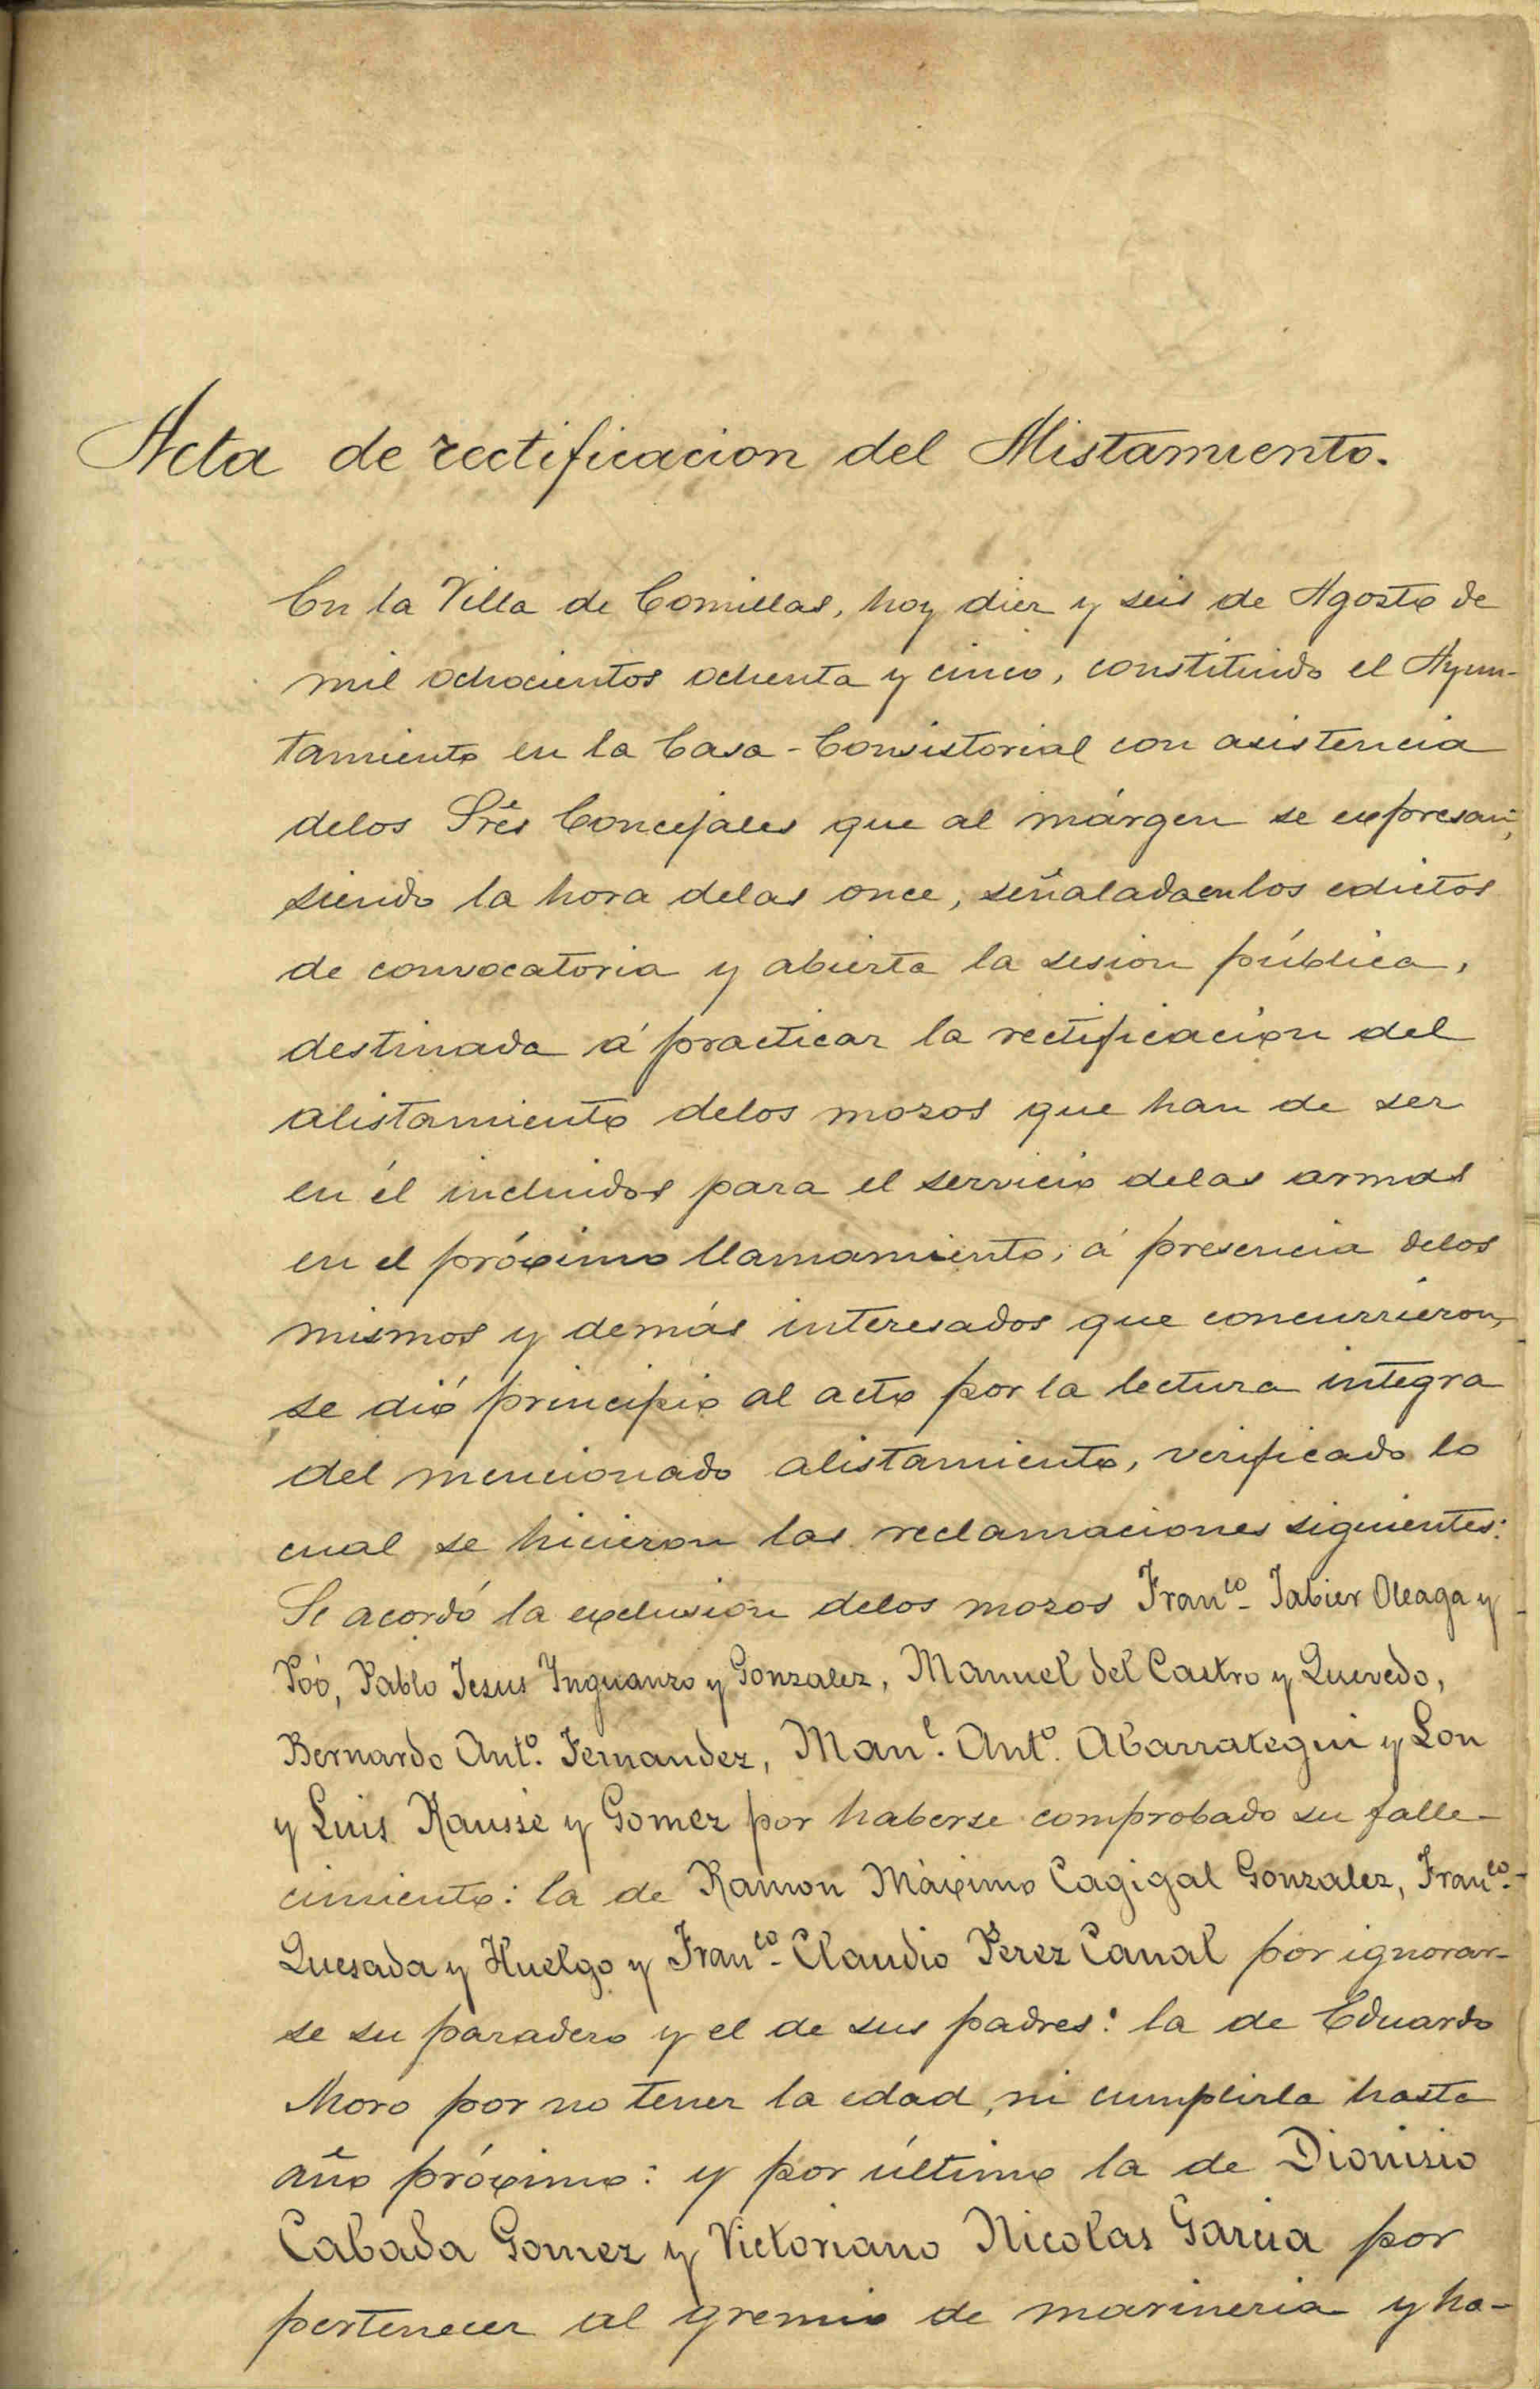 Acta de rectificacion del Alistamiento.
En la Villa de Comillas, hoy diez y seis de Agosto de
mil ochocientos ochenta y cinco, constituido el Ayun-
tamiento en la Casa-Consistorial con asistencia
delos Sres Concejales que al márgen se expresan,
siendo la hora delas once, señalada en los edictos
de convocatoria y abierta la sesion pública,
destinada á practicar la rectificacion del
alistamiento delos mozos que han de ser
en él incluidos para el servicio delas armas
en el próximo llamamiento; á presencia delos
mismos y demás interesados que concurrieron,
se dió principio al acto por la lectura integra
del mencionado alistamiento, verificado lo
cual se hicieron las reclamaciones siguientes:
Se acordó la exclusion delos mozos Franco Jabier Oleaga y
Poó, Pablo Jesus Inguanzo y Gonzalez, Manuel del Castro y Quevedo,
Bernardo Anto. Fernandez, Manl. Anto. Abarrategui y Lon
y Luis Rausse y Gomez por haberse comprobado su falle-
cimiento: la de Ramon Máximo Cagigal Gonzalez, Franco.
Quesada y Huelgo y Franco Claudio Perez Canal por ignorar-
se su paradero y el de sus padres: la de Eduardo
Moro por no tener la edad, ni cumplirla hasta
año próximo: y por último la de Dionisio
Cabada Gomez y Victoriano Nicolas Garcia por
pertenecer al gremio de marineria y ha-